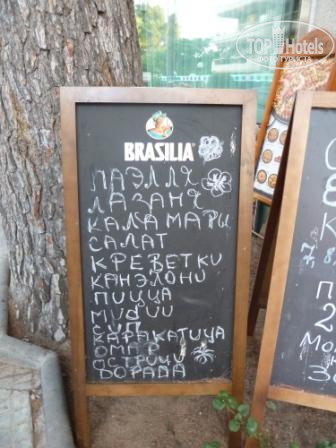 TOPHotels
BRASILIA
ПАЭЛЛЯ
ЛАЗАНЯ
КАЛАМАРЫ
САЛАТ
КРЕВЕТКИ
КАНЭЛОНИ
ПИЦЦА
МИДИИ
СУП
КАРАКАТИЦА
ОМАР
УСТРИЦЫ
ДОРАДА